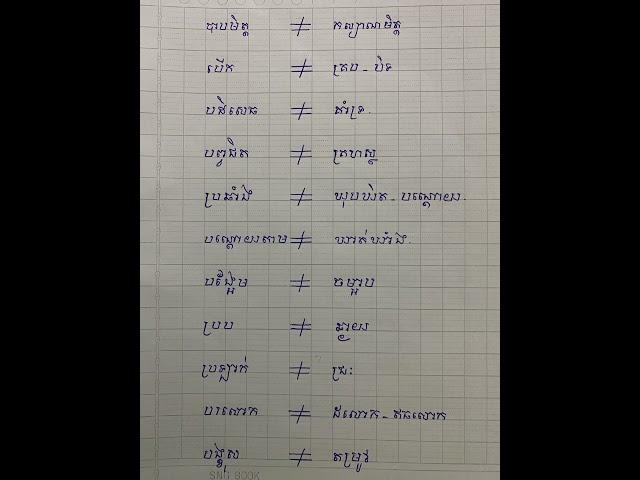 បាបមិត្ត ≠ កល្យាណមិត្ត
បើក ≠ គ្រប - បិទ
បដិសេធ ≠ គាំទ្រ.
បព្វជិត ≠ គ្រហស្ថ
ប្រឆាំង ≠ ឃុបឃិត - បណ្ដោយ.
បណ្ដោយតាម ≠ ឃាត់ឃាំង.
បង្អែម ≠ ចម្អាប
ប្រប ≠ ឆ្ងាយ
ប្រឡាក់ ≠ ជ្រះ
បរលោក ≠ ឥលោក - ឥធលោក
បង្ខុស ≠ តម្រូវ
SNG BOOK